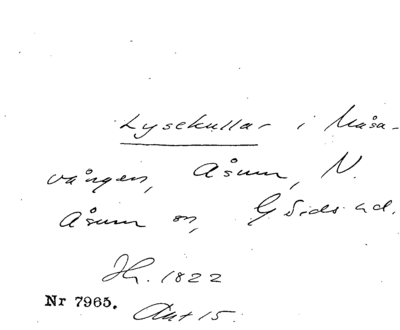 Lysekullar i Måsa-
vången, Åsum, N.
Åsum sn, Gärds hd.
Hr. 1822
Nr 7965.
Ant 15.